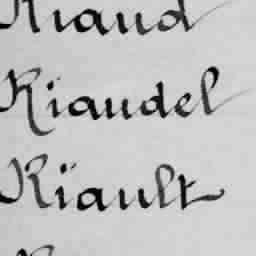 Riaud
Riaudel
Riault